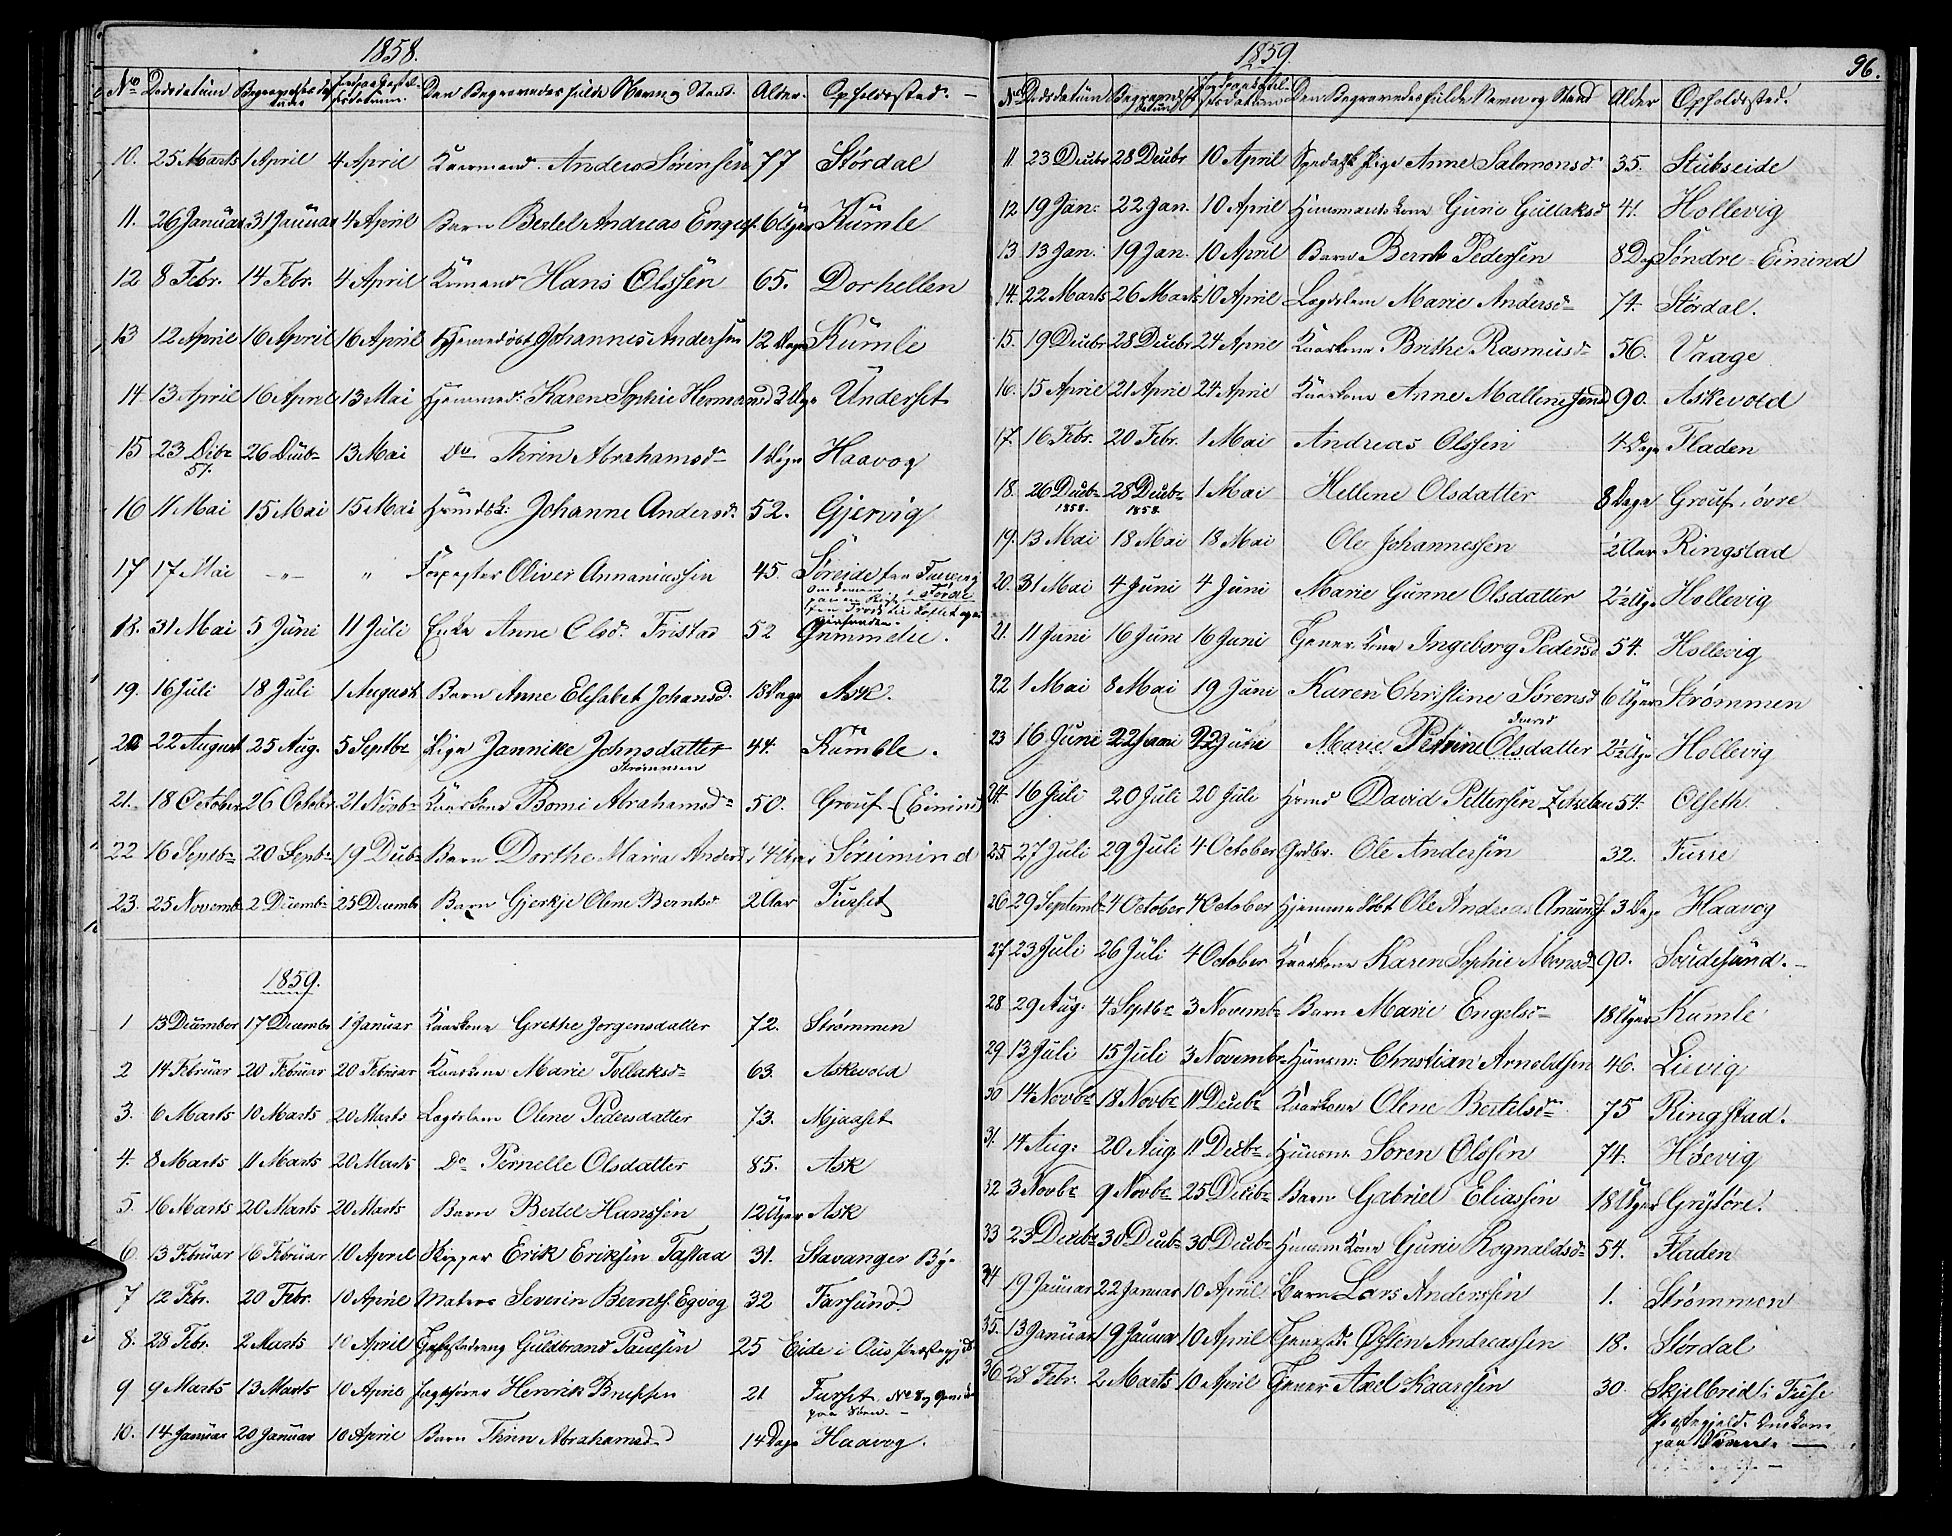 1858.
No Dødsdatum Begravelses Jordpaakastel- Den Begravedes fulde Navn og Stand. Alder. Opholdssted.
10. 25 Marts 1 April 4 April Kaarmand. Anders Sörensen 77 Stördal
11. 26 Januar 31 Januar 4 April Barn Bertel Andreas Engels. 6 Uger Kumle
12 8 Febr. 14 Febr. 4 April Kmand Hans Olssen 65. Dorhellen
13 12 April 16 April 16 April Hjemmedöbt Johannes Andersen 12 Dage Kumle
14 13 April 16 April 13 Mai Hjemmed: Karen Sophie Hermansd 3 Underset
15 23 Dcbr 57. 26 Decbr 13 Mai do Thrin Abrahamsdr 1 Haavog
16 11 Mai 15 Mai 15 Mai Johanne Andersdr 52. Gjervig
17 17 Mai -"- " Oliver Annaniassen 45. Söreide
18. 31 Mai 5 Juni 11 Juli Enke Anne Olsdr Tristad 52 Grimmelie.
19. 16 Juli 18 Juli 1 August Barn Anne Elisabet Johansd. 13 Dage Ask.
20 22 August 25 Aug. 5 Septbr Pige Jannike Johnsdatter 44. Kumble.
Strömmen
21. 18 October 26 October 21 Novbr Kaarkone Bomi Abrahamsdr 50. Grouf (Eimind)
22 16 Septbr 20 Septbr 19 Decbr Barn Dorthe Maria Andersd 14 Uger Söreimind
23. 25 Novembr 2 Decembr 25 Decembr Barn Gjerkje Oline Berntsd 2 Aar Furset
1859.
1 13 December 17 Decembr 1 Januar Kaarkone Grethe Jorgensdatter 72. Strømmen
2 14 Februar 20 Februar 20 Februar Kaarkone Marie Tollaksdr 63. Askevold
3. 6 Marts 10 Marts 20 Marts Lægdslem Oline Pedersdatter 73. Mjaaset
4. 8 Marts 11 Marts 20 Marts Do Pernelle Olsdatter 85. Ask
5. 16 Marts 20 Marts 20 Marts Barn Bertel Hanssen 12 Uger Ask
6. 13 Februar 16 Februar 10 April Skipper Erik Eriksen Tastad 31. Stavanger By
7 12 Febr. 20 Febr. 10 April Matros Severin Bernts. Egvog 32 Farsund
8. 28 Febr. 2 Marts 10 April Guldbrand Paulsen 25 Eide i Ous Præstegjd
9 9 Marts 13 Marts 10 April Henrik 21 Furset. No 8 og 9
paa Söen.
10. 14 Januar 20 Januar 10 April Barn Thrin Abrahamsd 14 Dage Haavog.
1859. 96.
No Dødsdatum Begravelses Den Begravedes fulde Navn og Stand Alder Opholdssted.
11 23 Decbr 28 Decbr 10 April Spedalsk Pige Anne Salomonsd 35. Stubseide
12 19 Jan: 22 Jan. 10 April Huusmands Kone Guri Gullaksd 41. Hollevig
13 13 Jan. 19 Jan. 10 April Barn Bernt Pedersen 8 Dage Søndre-Eimind
14. 22 Marts 26 Marts 10 April Lægdslem Marie Andersdr 74. Stördal.
15. 19 Decbr 28 Decbr 24 April Kaarkone. Brithe Rasmusdr 56. Vaage
16. 15 April 21 April 24 April Kaarkone Anne Mallene 90. Askevold
17. 16 Febr. 20 Febr. 1 Mai Andreas Olssen 4 Dage Fladen
18. 26 Decbr 1858. 28 Decbr 1858. 1 Mai Hellene Olsdatter 8 Dage Grouf, øvre
19. 13 Mai 18 Mai 18 Mai Ole Johannessen 1/2 Aar Ringstad
20. 31 Mai 4 Juni 4 Juni Marie Gunne Olsdatter 2 1/2 Uge Hollevig
21. 11 Juni 16 Juni 16 Juni Ingeborg Pedersd 54. Hollevig
22 1 Mai 8 Mai 19 Juni Karen Christine Sørensd 6 Uger Strømmen
23 16 Juni 22 Juni 22 Juni Marie Petrine Olsdatter 2 1/2 Uge Hollevig
24. 16 Juli 20 Juli 20 Juli Hmd David Pettersen 54. Olseth
25. 27 Juli 29 Juli 4 October Grdbr. Ole Andersen 32. Furre
26. 29 Septemb 4 October 4 October Hjemmedöbt Ole Andreas Amunds 3 Dage Haavog
27. 23 Juli 26 Juli 4 October Kaarkone Karen Sophie Monsdr 90. Stridesund.
28 29 Aug: 4 Septbr 3 Novembr Barn Marie Engelsdr 18 Uger Kumle
29 13 Juli 15 Juli 3 Novembr Huusm: Christian Arnoldtsen 46. Lievig
30 14 Novbr 18 Novbr 11 Decbr Kaarkone Oline Bertelsdr 75 Ringstad.
31. 14 Aug: 20 Aug. 11 Decbr Huusm: Soren Olssen 74. Høevig
32 3 Novbr 9 Novbr 25 Decbr Barn Gabriel Eliassen 18 Uger Grytøre.
33 23 Decbr 30 Decbr 30 Decbr Huusm Kone Guri Rognaldsdr 54. Fladen
34 19 Januar 22 Januar 10 April Barn Lars Anderssen 1. Strømmen
35. 13 Januar 19 Januar 10 April Østen Andreassen 18. Stördal
36 28 Febr. 2 Marts 10 April Axel Kaaressen 30. Skjelbreid i
Præstegjeld. Omkom
paa Söen.